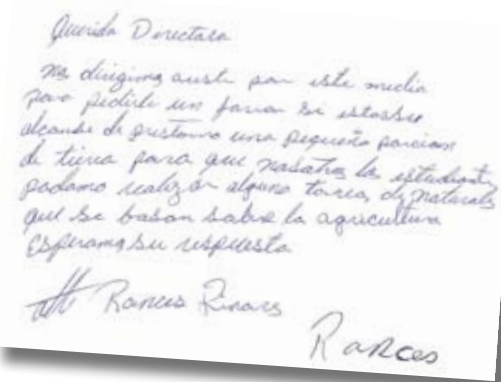 Querida Directora
Nos dirigimos a usted por este medio
para pedirle un favor si esta a su
alcance de prestarno una pequeña porcion
de tierra para que nosotros los estudiantes
podamo realizar alguna tarea de naturales
que se basan sobre la agricultura
Esperamos su respuesta
Att Rances
Rances